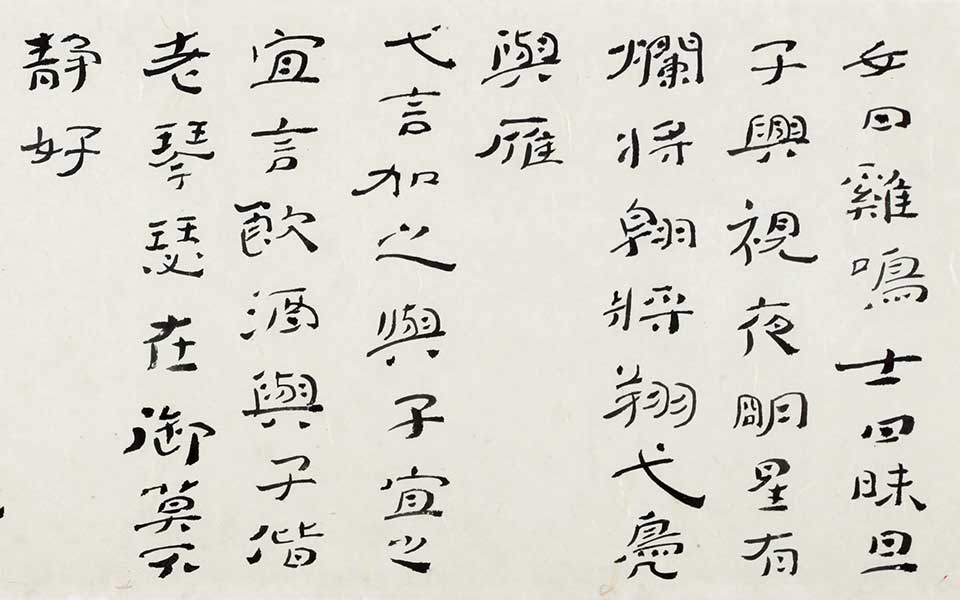 女曰雞鳴士曰昧旦
子興視夜明星有
爛將翱將翔弋鳧
與雁
弋言加之與子宜之
宜言飲酒與子偕
老琴瑟在御莫不
静好